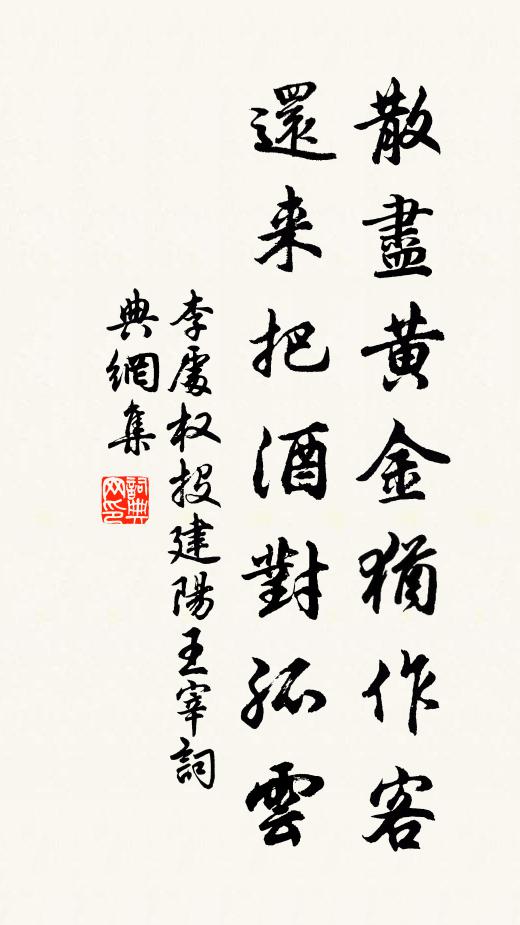 散盡黃金猶作客
還来把酒對孤雲
李處权投建陽王宰詞
典網集
詞典
网印